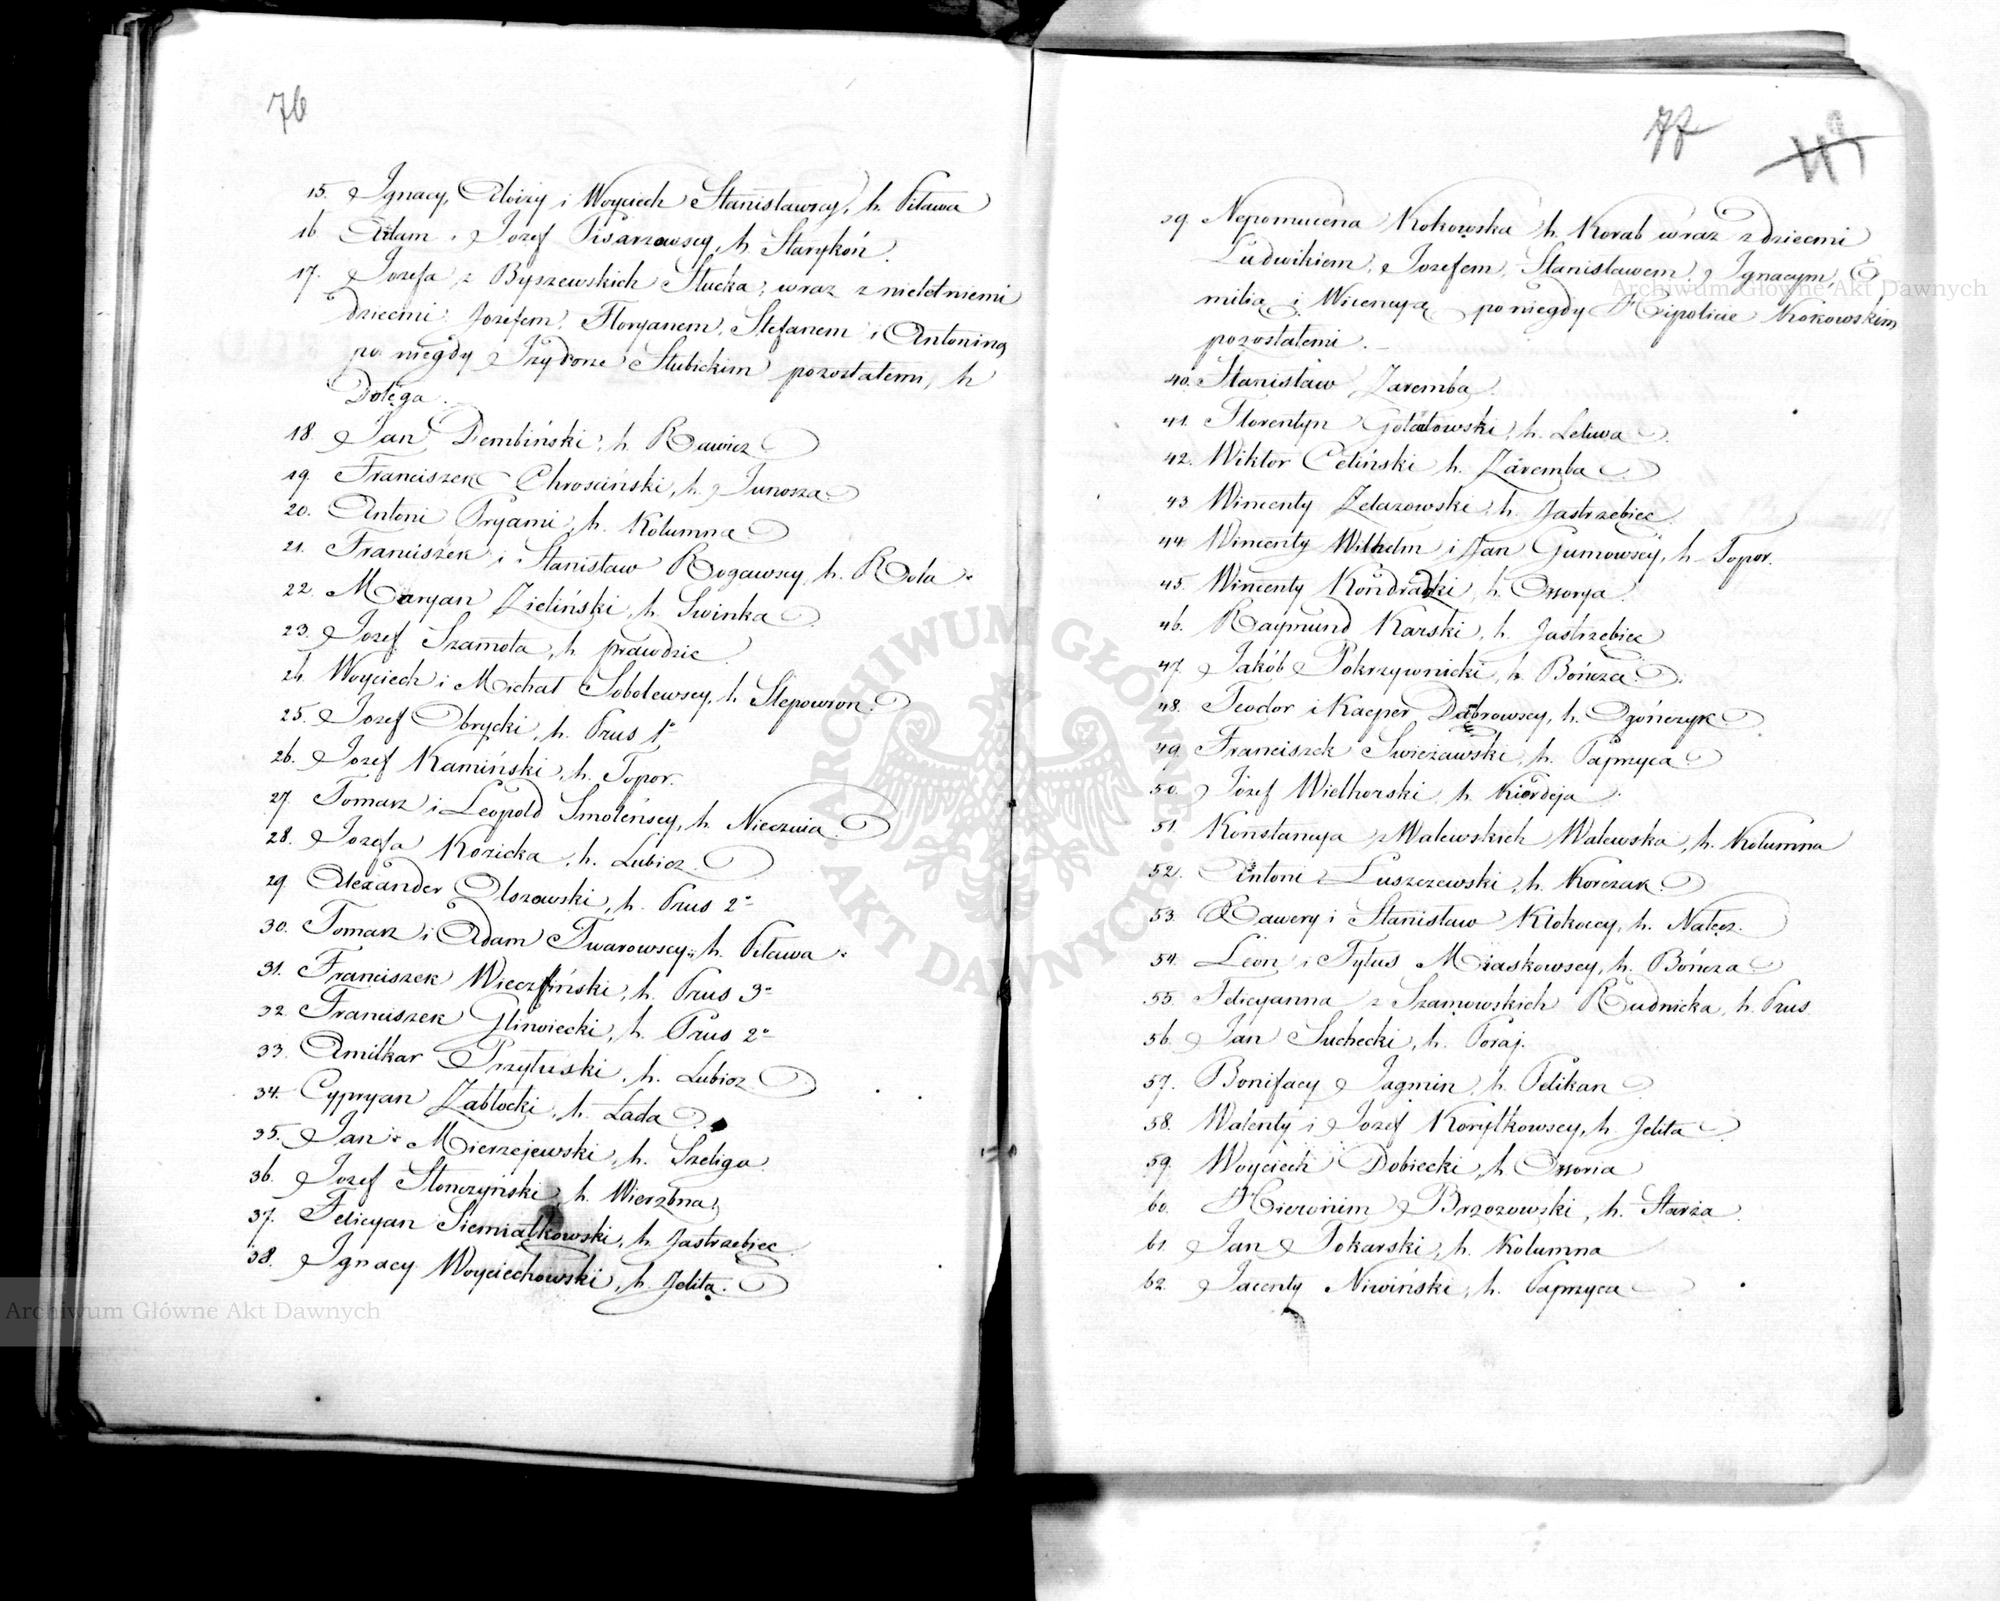 76
15. Ignacy, Aloizy i Woyciech Stanisławscy, h. Pilawa
16. Adam i Jozef Pisarzewscy, h. Starykoń.
17. Jozefa z Byszewskich Słucka, wraz z nieletniemi
dziećmi Jozefem, Floryanem, Stefanem i Antoniną
po niegdy Izydorze Słubickim pozostałemi, h
Dołęga.
18. Jan Dembiński, h. Rawicz
19. Franciszek Chrościński, h. Junosza
20. Antoni Pryami, h. Kolumna
21. Franciszek i Stanisław Rogawscy, h. Rola.
22. Maryan Zieliński, h. Swinka
23. Jozef Szamota, h. prawdzic
24. Woyciech i Michał Sobolewscy, h. Slepowron.
25. Jozef Obrycki, h. Prus 1°
26. Jozef Kamiński, h. Topor.
27. Tomasz i Leopold Smoleńscy, h. Nieczuia.
28. Jozefa Kozicka, h. Lubicz.
29. Alexander Olszewski, h. Prus 2°
30. Tomasz i Adam Twarowscy, h. Pilawa.
31. Franciszek Wieczfiński, h. Prus 3°
32. Franciszek Gliniecki, h. Prus 2°
33. Amilkar Przyłuski, h. Lubicz
34. Cypryan Zabłocki, h. Łada
35. Jan Mierzejewski, h. Szeliga
36. Jozef Słonczyński h. Wierzbna
37. Felicyan Siemiątkowski, h. Jastrzebiec
38. Ignacy Woyciechowski, h. Jelita.
77
39. Nepomucena Kokowska h. Korab wraz z dziecmi
Ludwikiem, Jozefem, Stanisławem, Ignacym, E
milią i Wicencyą po niegdy Hipolicie Kokowskim
pozostałemi.
40. Stanisław Zaremba.
41. Florentyn Gołatowski, h. Leliwa
42. Wiktor Celiński h. Zaremba
43. Wincenty Zelazowski, h. Jastrzebiec
44. Wincenty Wilhelm i Jan Gumowscy, h. Topor.
45. Wincenty Kondradzki, h. Ossorya
46. Raymund Karski, h. Jastrzębiec
47. Jakób Pokrzywnicki, h. Bończa.
48. Teodor i Kacper Dąbrowscy, h. Ogończyk
49. Franciszek Swieżawski, h. Paprzyca
50. Józef Wielhorski h. Kierdeja
51. Konstancya z Walewskich Walewska, h. Kolumna
52. Antoni Luszczewski, h. Korczak.
53. Xawery i Stanisław Kłokoccy, h. Nałęcz.
54. Leon i Tytus Miaskowscy, h. Bończa
55. Felicyanna z Szamowskich Rudnicka, h. Prus
56. Jan Suchecki, h. Poraj.
57. Bonifacy Jagmin, h. Pelikan
58. Walenty i Jozef Korytkowscy, h. Jelita
59. Woyciech Dobiecki, h Ossoria
60. Hieronim Brzozowski, h. Starża
61. Jan Tokarski, h. Kolumna
62. Jacenty Niwiński, h. Paprzyca
ARCHIWUM GŁÓWNE AKT DAWNYCH
Archiwum Główne Akt Dawnych
Archiwum Główne Akt Dawnych